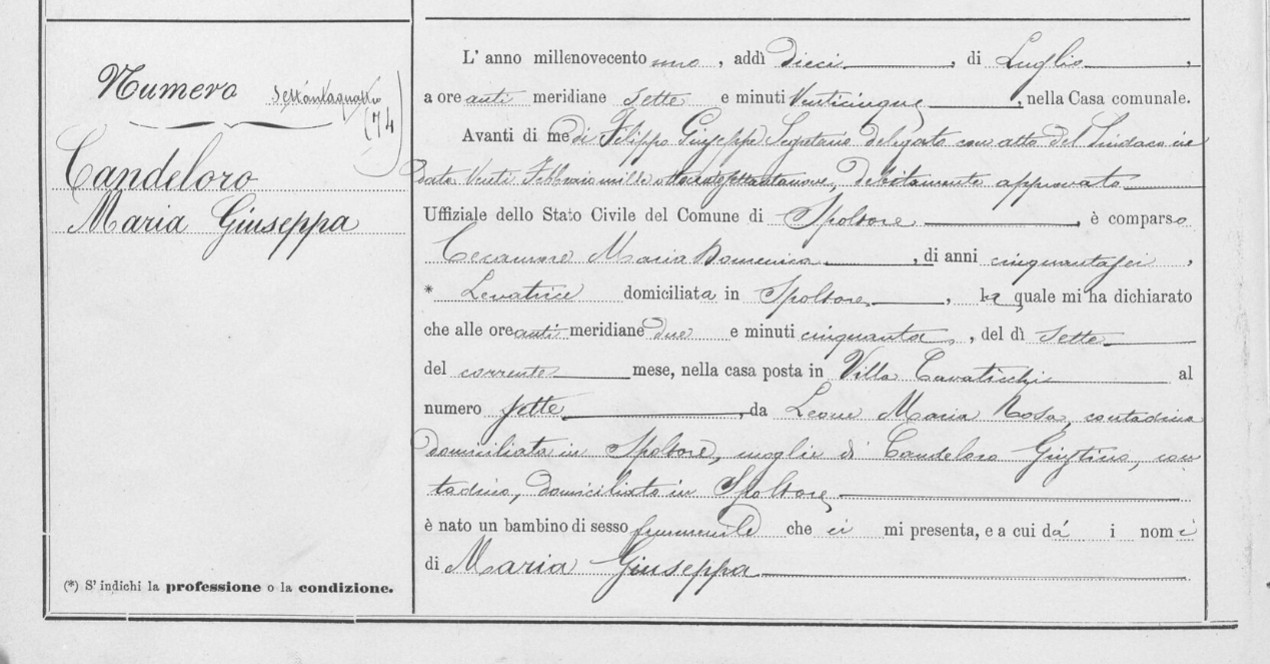 Numero settantaquattro
(74)
Candeloro
Maria Giuseppa
(*) S' indichi la professione o la condizione.
L' anno millenovecento uno, addì dieci, di Luglio,
a ore anti meridiane sette e minuti venticinque, nella Casa comunale.
Avanti di me di Filippo Giuseppe Segretario delegato con atto del Sindaco in
data venti Febbraio mille ottocentottantanove, debitamente approvato
Uffiziale dello Stato Civile del Comune di Spoltore, è comparso
Maria Domenica, di anni cinquantasei,
* Levatrice domiciliata in Spoltore, la quale mi ha dichiarato
che alle ore anti meridiane due e minuti cinquanta, del dì sette
del corrente mese, nella casa posta in Villa Cavaticchi al
numero sette, da Leone Maria Rosa, contadina
domiciliata in Spoltore, moglie di Candeloro Giustino, con
tadino, domiciliato in Spoltore
è nato un bambino di sesso femminile che ci mi presenta, e a cui dà i nomi
di Maria Giuseppa